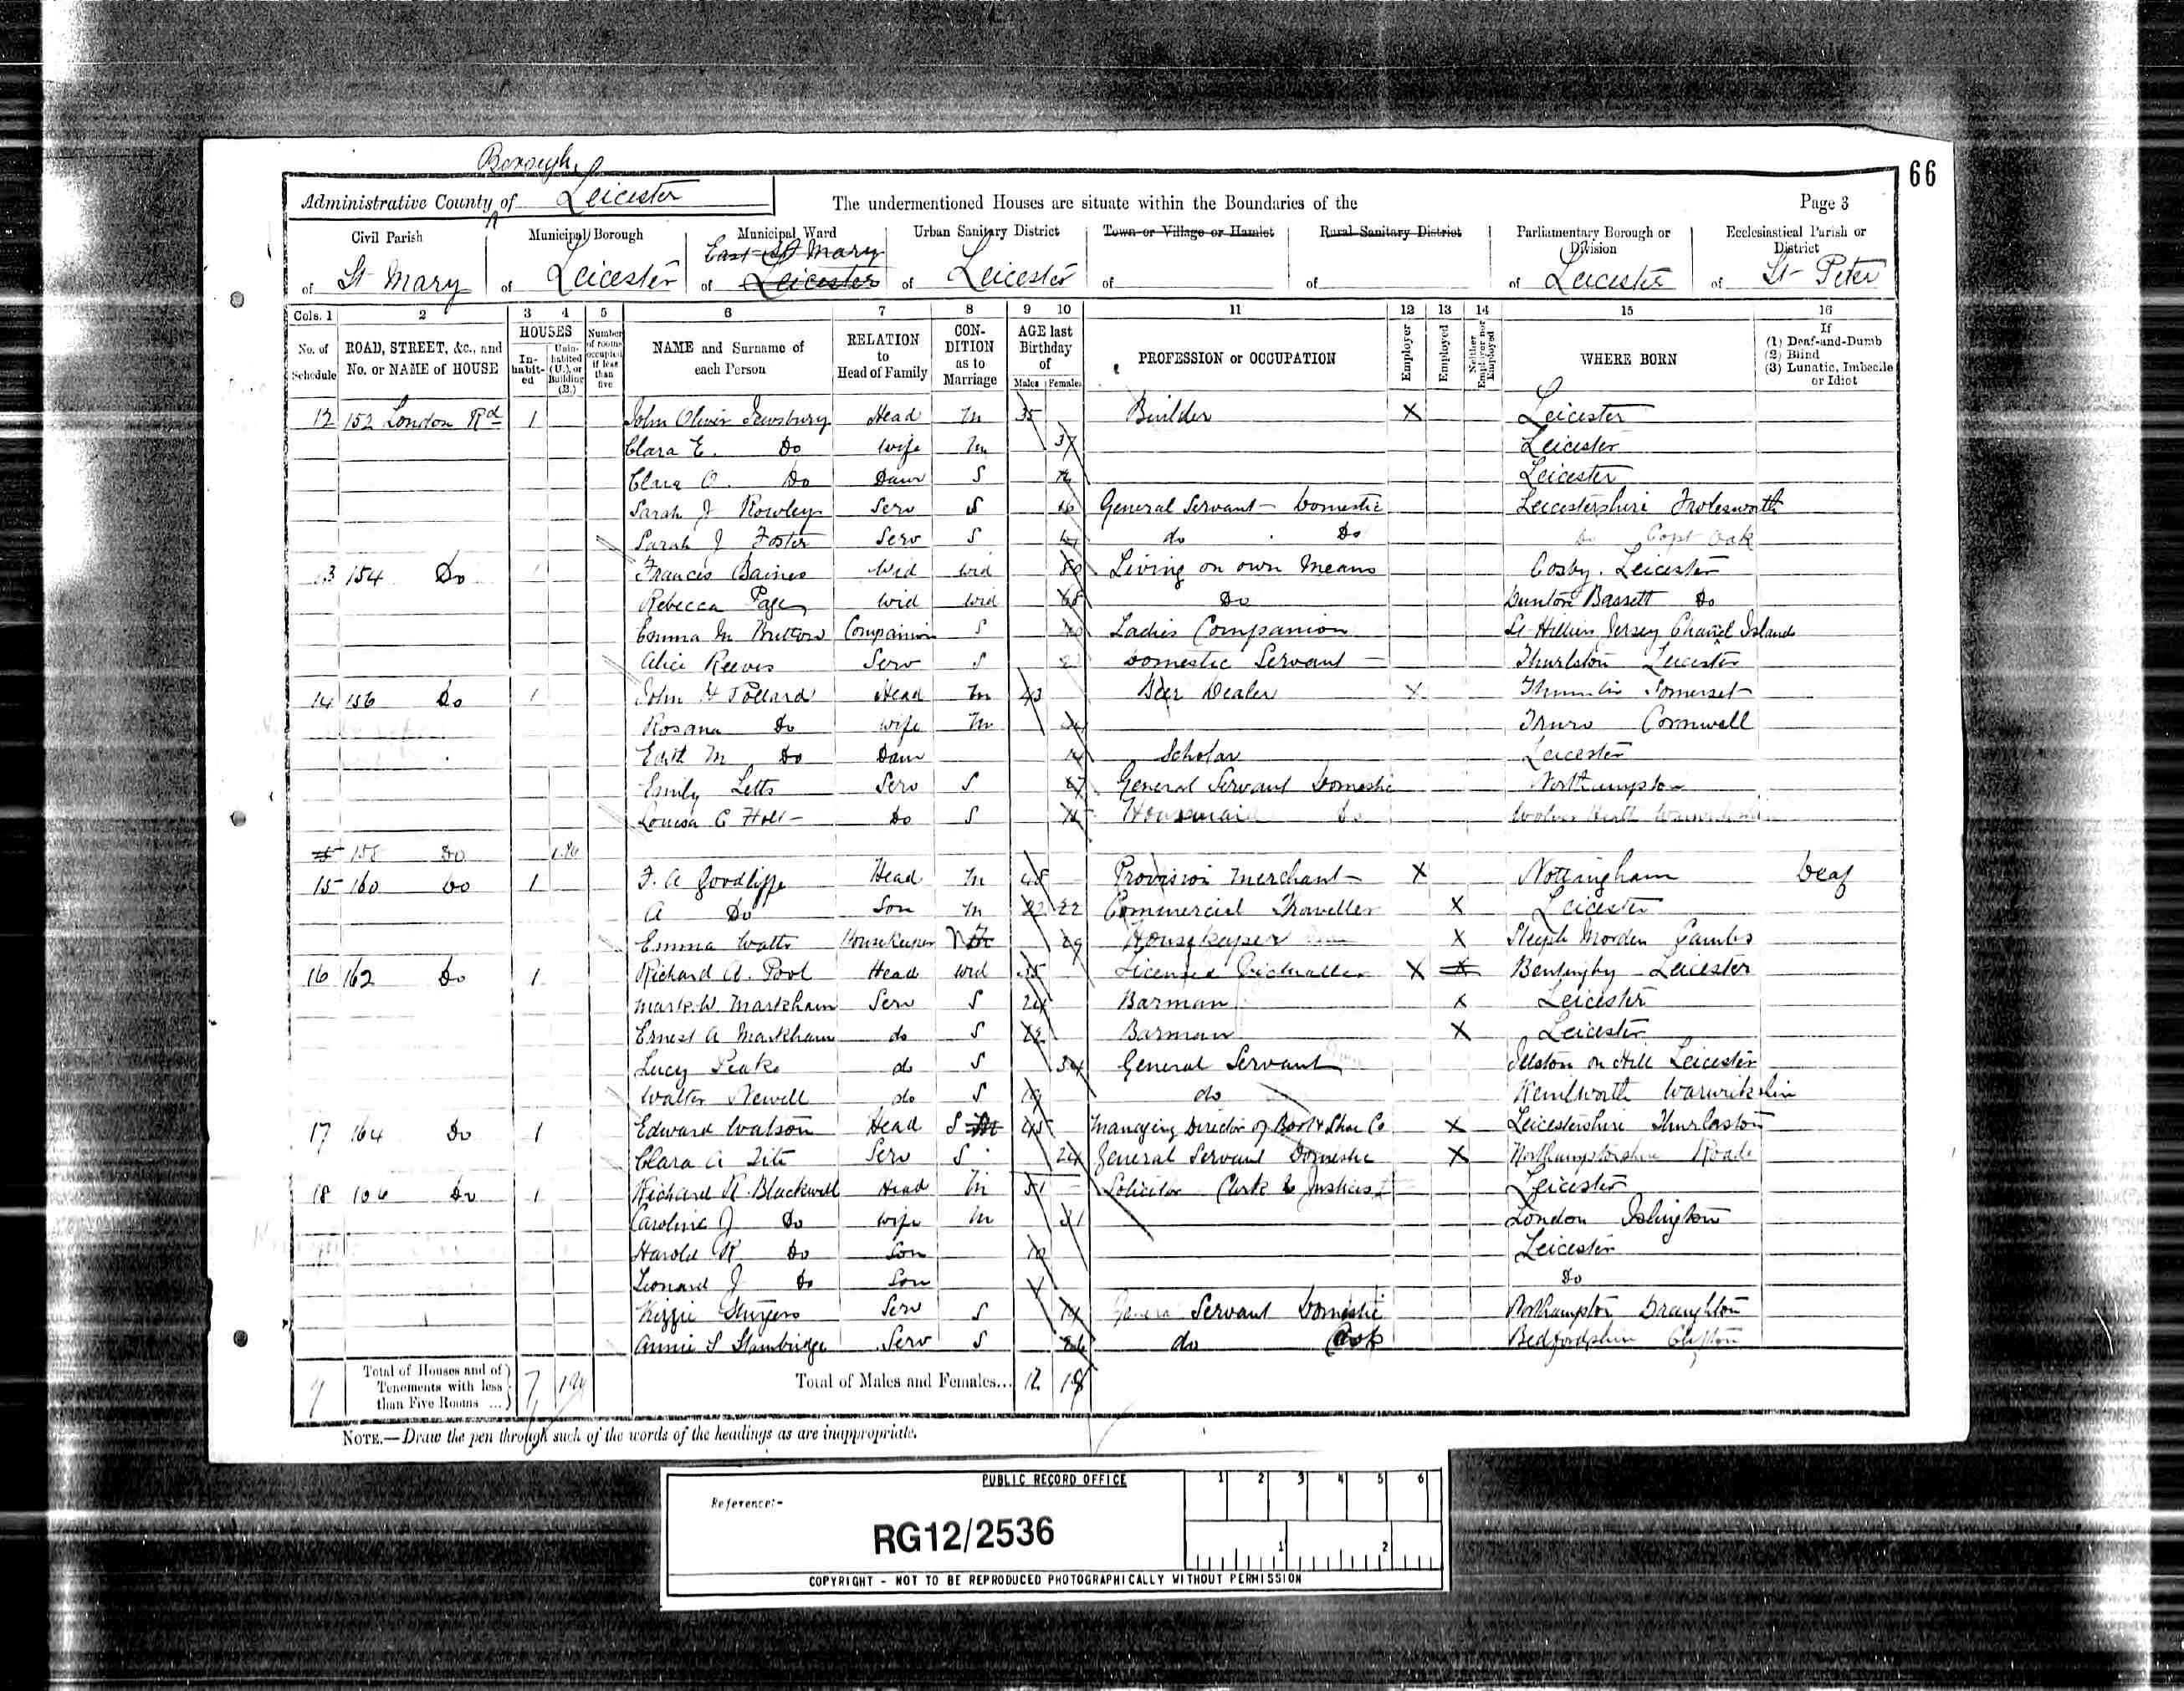 66
Borough
Administrative County of Leicester
The undermentioned Houses are situate within the Boundaries of the
Page 3
Civil Parish of St Mary
Municipal Borough of Leicester
Municipal Ward of East St Mary Leicester
Urban Sanitary District of Leicester
Town or Village or Hamlet of
Rural Sanitary District of
Parliamentary Borough or Division of Leicester
Ecclesiastical Parish or District of St Peter
Cols. 1 2 3 4 5 6 7 8 9 10 11 12 13 14 15 16
No. of Schedule
ROAD, STREET, &c., and No. or NAME of HOUSE
HOUSES
In-habit-ed
Unin-habited (U.), or Building (B.)
Number of rooms occupied if less than five
NAME and Surname of each Person
RELATION to Head of Family
CON-DITION as to Marriage
AGE last Birthday of
Males Females
PROFESSION or OCCUPATION
Employer
Employed
Neither Employer nor Employed
WHERE BORN
If (1) Deaf-and-Dumb (2) Blind (3) Lunatic, Imbecile or Idiot
12 152 London Rd 1 John Oliver Jewsbury Head M 35 Builder X Leicester
Clara E. Do Wife M 37 Leicester
Clara O. Do Daur S Leicester
Sarah J Rowley Serv S 16 General Servant Domestic Leicestershire Frolesworth
Sarah J Foster Serv S do Do Do Copt Oak
13 154 Do Frances Baines Wid Wid 80 Living on own Means Cosby. Leicester
Rebecca Page Wid Wid 68 Do Dunton Bassett Do
Emma M Britton Companion S Ladies Companion St Helliers Jersey Channel Islands
Alice Reeves Serv S Domestic Servant Thurlston Leicester
14 156 Do 1 John H Pollard Head M 43 Beer Dealer X Somerset
Rosana Do Wife M Truro Cornwell
Edith M Do Daur 14 Scholar Leicester
Emily Letts Serv S General Servant Domestic Northampton
Louisa C Holt Do S Housemaid Do
15 158 Do
15 160 Do 1 F. A Goodliffe Head M 48 Provision Merchant X Nottingham Deaf
A Do Son M 22 22 Commercial Traveller X Leicester
Emma Watts Housekeeper 29 Housekeeper X Steeple Morden Cambs
16 162 Do 1 Richard A. Pool Head Wid 35 Licensed Victualler X X Leicester
Mark. W. Markham Serv S 24 Barman X Leicester
Ernest A Markham do S 22 Barman X Leicester
Lucy Peake do S 54 General Servant Illston on Hill Leicester
Walter Newell do S 19 do Kenilworth Warwickshire
17 164 Do 1 Edward Watson Head S M 45 Managing Director of Boot & Shoe Co X Leicestershire Thurlaston
Clara A Tite Serv S 24 General Servant Domestic X Northamptonshire Roade
18 166 Do 1 Richard R. Blackwell Head M 51 Solicitor Clerk to Justices Leicester
Caroline J Do Wife M 31 London Islington
Harold R. Do Son Leicester
Leonard J Do Son Do
Kizzie Serv S 19 General Servant Domestic Northampton Draughton
Annie S Stanbridge Serv S 26 do Cook Bedfordshire Clifton
7 Total of Houses and of Tenements with less than Five Rooms ... 7
Total of Males and Females... 12 18
NOTE.—Draw the pen through such of the words of the headings as are inappropriate.
PUBLIC RECORD OFFICE
1 2 3 4 5 6
Reference:-
RG12/2536
1 2
COPYRIGHT - NOT TO BE REPRODUCED PHOTOGRAPHICALLY WITHOUT PERMISSION